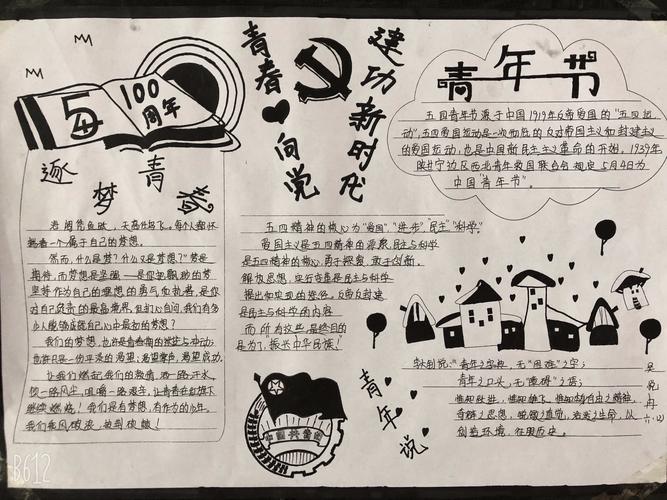 5
4
100
周年
逐梦青春
青春
向党
建功新时代
青年节
五四青年节源于中国1919年反帝爱国的"五四运
动",五四爱国运动是一次彻底的反对帝国主义和封建主义
的爱国运动,也是中国新民主主义革命的开始,1939年
陕甘宁边区西北青年救国联合会规定5月4日为
中国"青年节"。
海阔凭鱼跃,天高任鸟飞。每个人都怀
揣着一个属于自己的梦想。
然而,什么是梦?什么又是梦想?梦是
期待,而梦想是坚强
坚持作为自己的理想的勇气和执着,是你
对自己负责的最高境界,但扪心自问,我们有多
少人能够正视自己心中最初的梦想?
我们的梦想,也许是青春期的
也许只是一份平凡的渴望,渴望掌声,渴望成功。
让我们燃起我们的激情,洒一路汗水,
饮一路风尘,
继续燃烧!我们是有梦想,有作为的少年。
我们乘风破浪,
五四精神的核心为"爱国","进步","民主","科学"。
爱国主义是五四精神的源泉,民主与科学
是五四精神的核心,勇于探索、敢于创新、
解放思想、实行变革是民主与科学
提出和实现的途径,反帝反封建
是民主与科学的内容
而所有这些,最终目的
是为了,振兴中华民族!
中国共青团
青年说
"青年之字典,无"困难"之字;
青年之口头,无"障碍"之语;
惟知跃进,惟知雄飞,惟知本自由之精神,
奇僻之思想,锐敏之直觉,活泼之生命,以
创造环境,征服历史。
六.(2)
B612